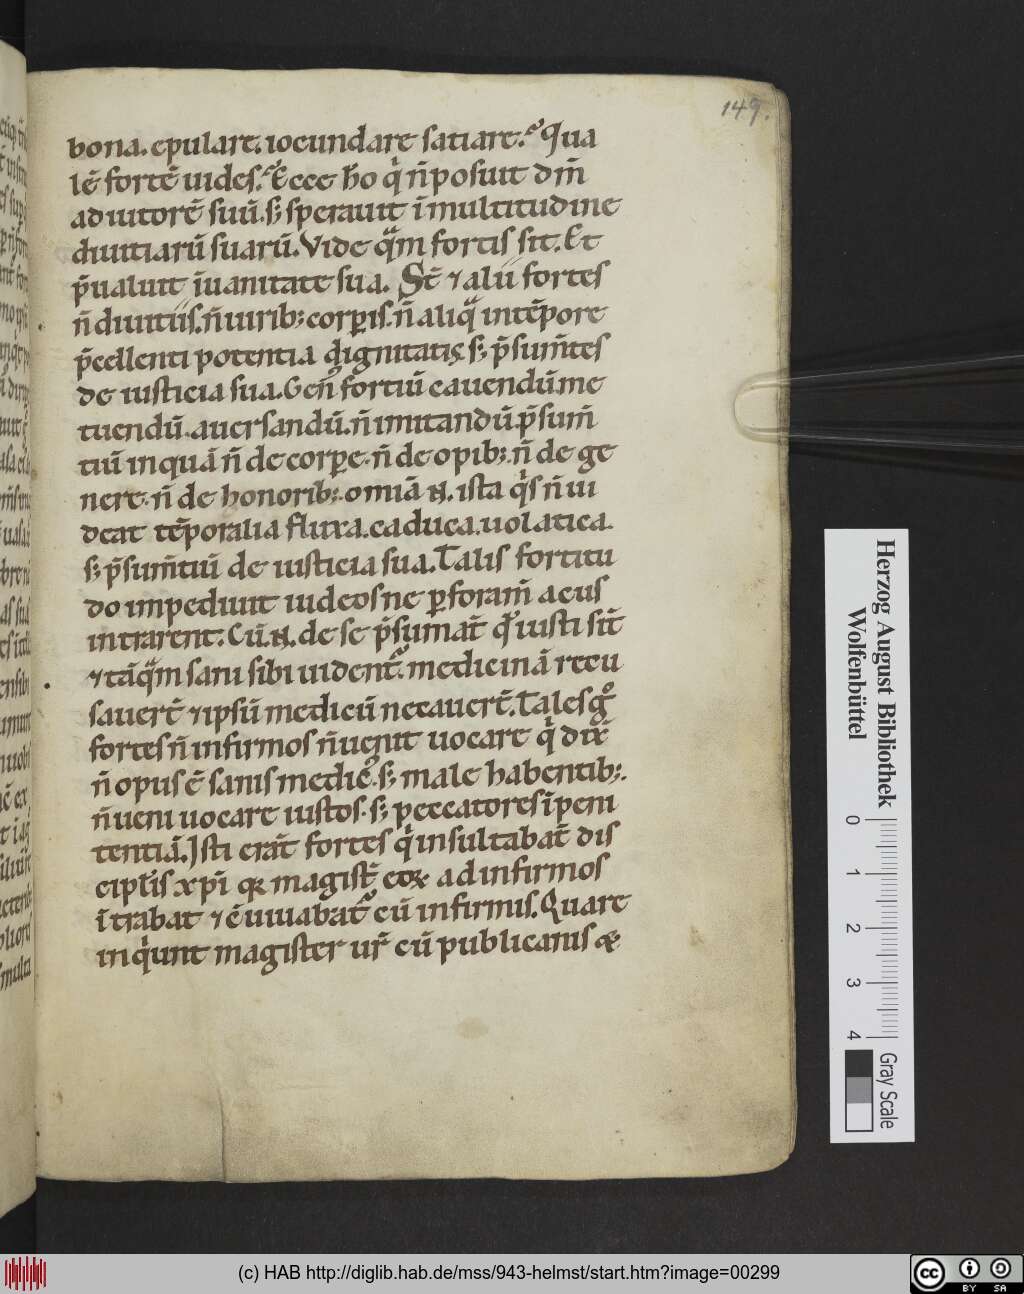 149.
bona. epulare. iocundare satiare. Qua
lē fortē uides. Ecce ho q̇ n̄ posuit dm̄
adiutorē suū. s; sperauit ī multitudine
diuitiarū suarū. Vide qͣm fortis sit. Et
p̄ualuit ī uanitate sua. St̄ ⁊ alii fortes
n̄ diuitiis. n̄ uirib; corꝑis. n̄ aliqͣ intēpore
p̄cellenti potentia dignitatis s; p̄sum̄tes
de iusticia sua. Gen̄ fortiū cauendū. me
tuendū. auersandū. n̄ imitandū. p̄sum̄
tiū inquā n̄ de corꝑe. n̄ de opib;. n̄ de ge
nere. n̄ de honorib;. omiā .N. ista q̇s n̄ ui
deat tēporalia fluxa. caduca. uolatica.
s; p̄sum̄tiū de iusticia sua. Talis fortitu
do impediuit iudeos ne ꝑ foram̄ acus
intrarent. Cū .N. de se p̄sumat̄ qď iusti sīt
⁊ tāqͣm sani sibi uident᷒. medicinā recu
sauert̄ ⁊ ipsū medicū necauert̄. Tales gͦ
fortes n̄ infirmos n̄ uenit uocare q̇ dix̄
n̄ opus ē sanis medic᷒. s; male habentib;.
n̄ ueni uocare iustos. s; peccatores ī peni
tentiā. Isti erāt fortes q̇ insultabāt dis
ciplis xp̄i qꝛ magist̄ eoꝝ ad infirmos
ītrabat ⁊ ēuiuabat᷒ cū infirmis. Quare
inq̇unt magister ur̄ cū publicanis &
Herzog August Bibliothek
Wolfenbüttel
0 1 2 3 4
Gray Scale
(c) HAB http://diglib.hab.de/mss/943-helmst/start.htm?image=00299
cc BY SA